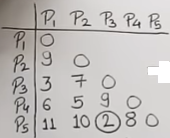 P₁ P₂ P₃ P₄ P₅
P₁ 0
P₂ 9 0
P₃ 3 7 0
P₄ 6 5 9 0
P₅ 11 10 2 8 0